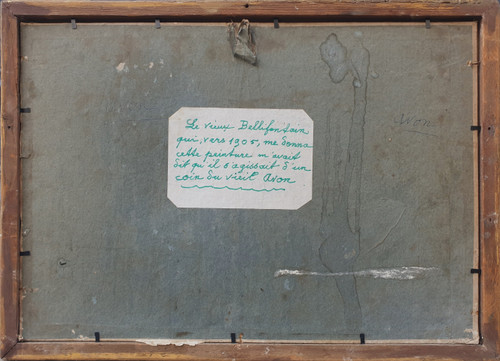 Le vieux Bellifontain
qui, vers 1905, me donna
cette peinture m'avait
dit qu'il s'agissait d'un
coin du vieil Avon
Avon